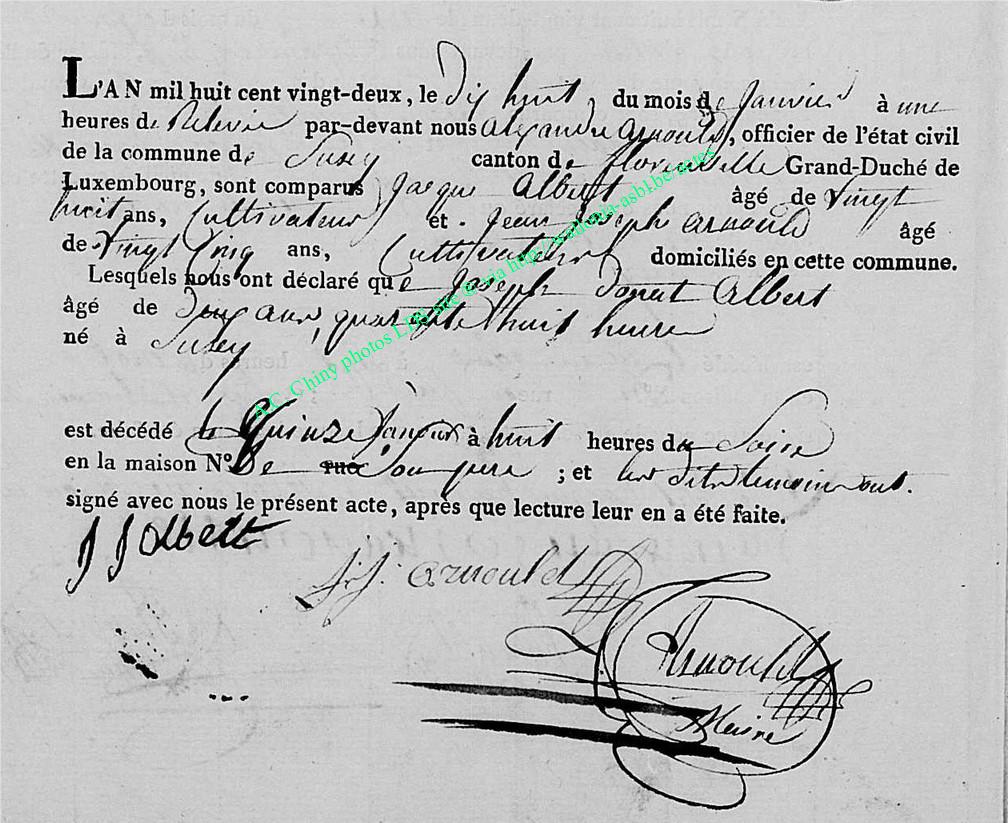 L'AN mil huit cent vingt-deux, le Dix huit du mois de Janvier à une
heures de Relevée par-devant nous alexandre arnould, officier de l'état civil
de la commune de Suxy canton de florenville Grand-Duché de
Luxembourg, sont comparus Jacque Albert âgé de vingt
huit ans, Cultivateur et Jean Joseph arnould âgé
de vingt Cinq ans, Cultivateur domiciliés en cette commune.
Lesquels nous ont déclaré que Joseph Donat Albert
âgé de Deux ans, quarante huit heure
né à Suxey
est décédé le Quinze Janvier à huit heures du Soire
en la maison N° De rue Son pere ; et les dits temoins ont.
signé avec nous le présent acte, après que lecture leur en a été faite.
J J Albert
j: j: arnould
Arnould
Maire
A.C. Chiny photos LDB site © via http://wallonia-asbl.be/actes